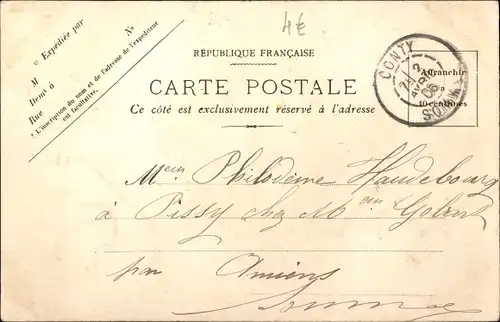 4€
Expédiée par
No
M
Demt à
Rue
L'inscription du nom et de l'adresse de l'expéditeur
est facultative.
RÉPUBLIQUE FRANÇAISE
CARTE POSTALE
Ce côté est exclusivement réservé à l'adresse
CONTY
2
AVRIL
06
SOMME
Affranchir
à
10 centimes
Philodème Haudebourg
à Pissy chez Mme
par Amiens
Somme